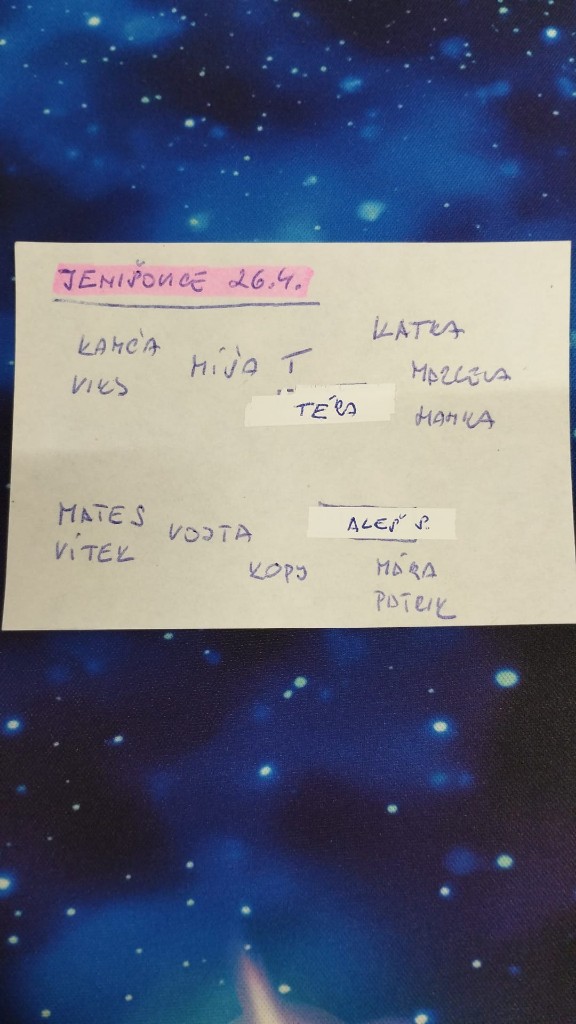 JENIŠOVICE 26.4.
KAMČA
VIKS
MÍŠA T
TÉRA
KATKA
MARCELA
HANKA
MATES
VÍTEK
VOJTA
KOPJ
ALEŠ P.
MÁRA
PATRIK